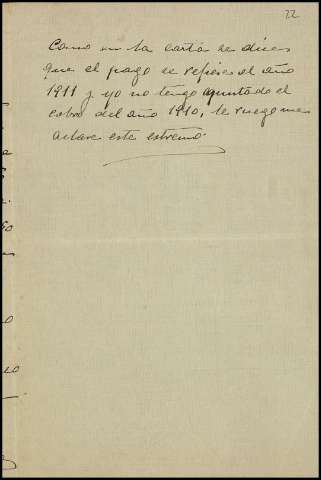 22
Como en la carta se dice
que el pago se refiere al año
1911 y yo no tengo apuntado el
cobro del año 1910, le ruego me
aclare este extremo.